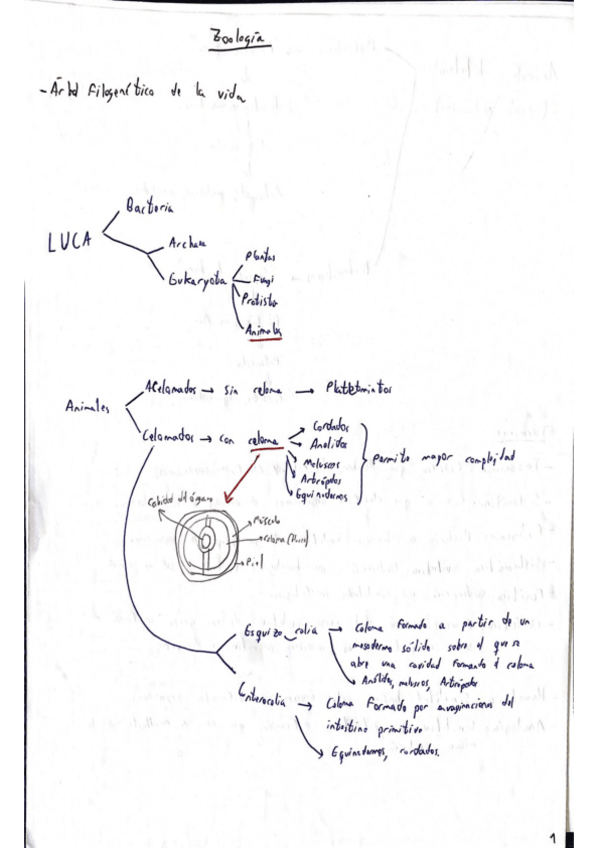 Zoología
- Árbol Filogenético de la vida
Bacteria
LUCA
Archaea
Eukaryota
Plantas
Fungi
Protista
Animales
Animales
Acelomados → sin celoma → Platelmintos
Celomados → con celoma
Cordados
Anélidos
Moluscos
Artrópodos
Equinodermos
permite mayor complejidad
Cavidad del órgano
Músculo
celoma
Piel
Esquizocelia → Celoma formado a partir de un
mesodermo sólido sobre el que se
abre una cavidad formando el celoma
Anélidos, moluscos, Artrópodos
Enterocelia → Celoma Formado por invaginaciones del
intestino primitivo
Equinodermos, cordados.
1